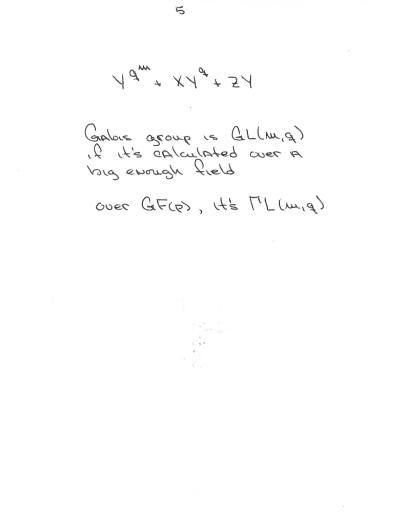 5
Y^{q^m} + XY^q + ZY
Galois group is GL(m,q)
if it's calculated over a
big enough field
over GF(p), it's ΓL(m,q)